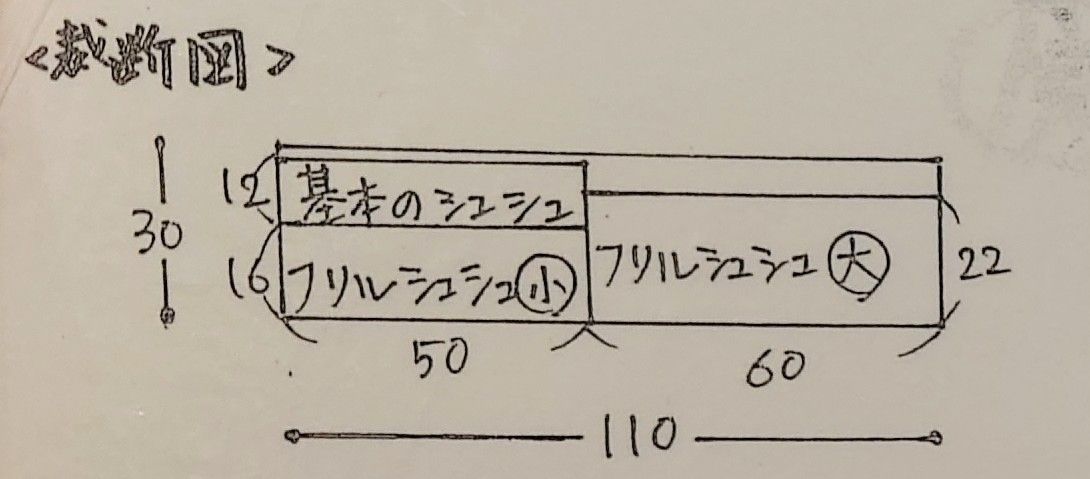 <裁断図>
12 基本のシュシュ
30
16 フリルシュシュ小 フリルシュシュ大 22
50 60
110